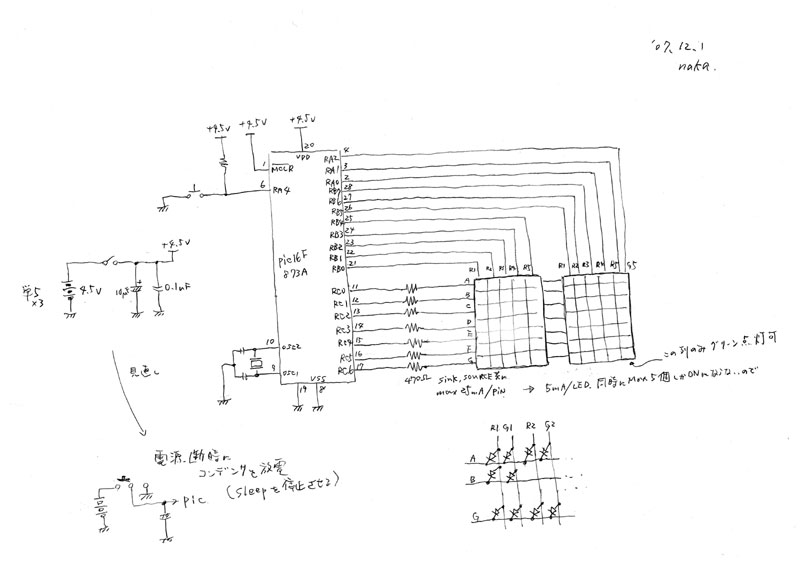 '07.12.1
naka.
+4.5V
+4.5V
+4.5V
20
VDD
1
MCLR
6
RA4
pic16F
873A
RA2 4
RA1 3
RA0 2
RB7 28
RB6 27
RB5 26
RB4 25
RB3 24
RB2 23
RB1 22
RB0 21
RC0 11
RC1 12
RC2 13
RC3 14
RC4 15
RC5 16
RC6 17
10
OSC2
9
OSC1
VSS
19
8
470Ω
R1 R2 R3 R4 R5
R1 R2 R3 R4 R5 G5
A
B
C
D
E
F
G
+4.5V
単5
×3
4.5V
10μF
0.1uF
この列のみ グリーン点灯可
sink, source共に
max 25mA/PIN → 5mA/LED. 同時にMax 5個しかONにならないので
見直し
電源断時に
コンデンサを放電
(sleepを停止させる)
→ pic
R1 G1 R2 G2
A
B
G